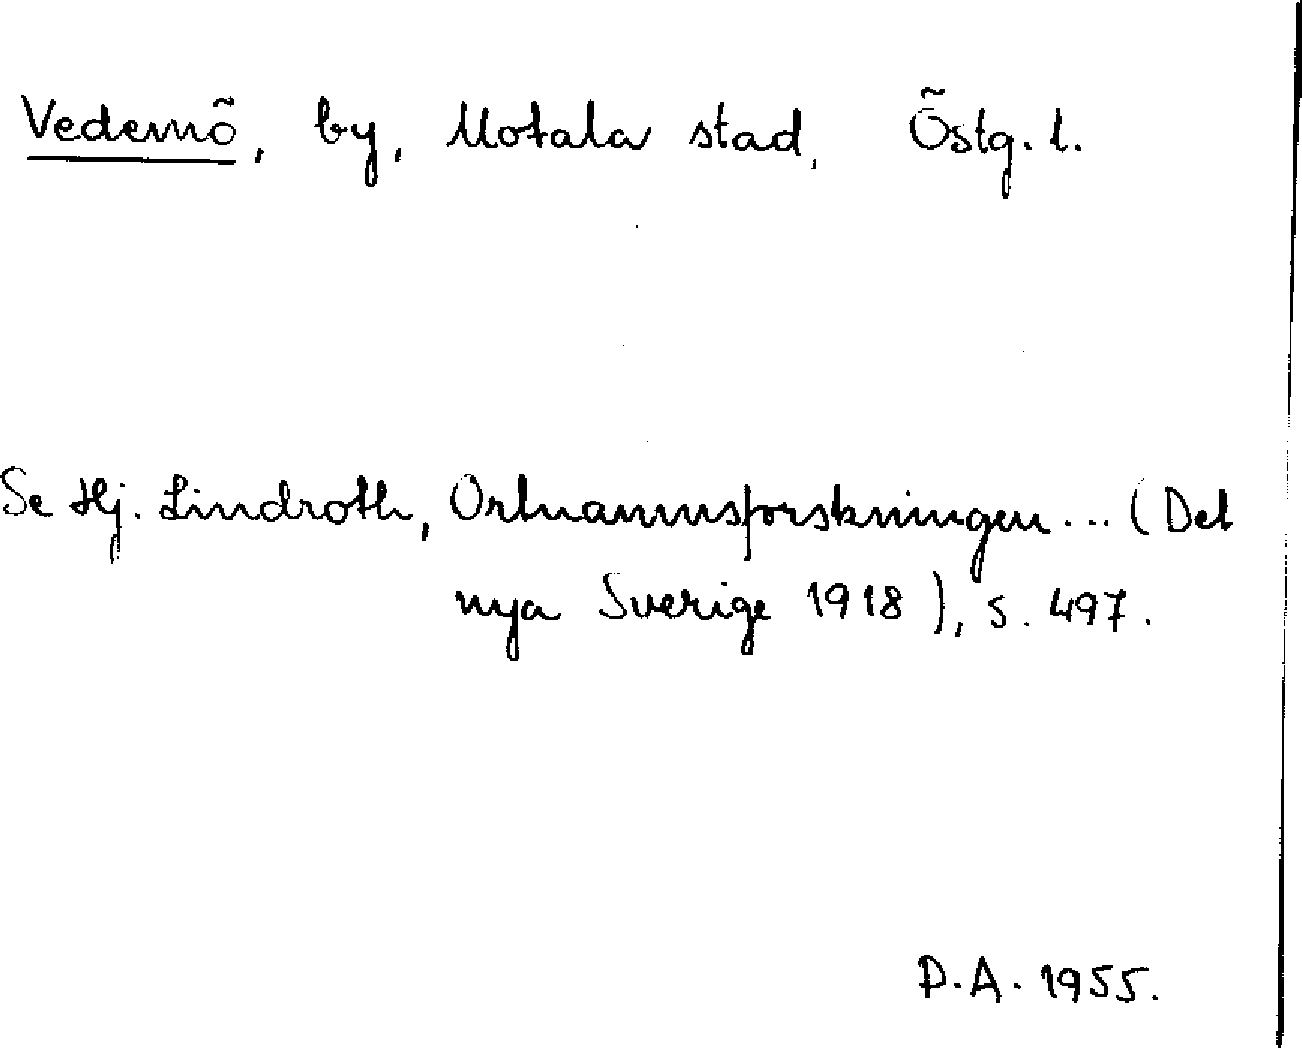 Vedemö, by, Motala stad, Östg. l.
Se Hj. Lindroth, Ortnamnsforskningen... (Det
nya Sverige 1918), s. 497.
D.A. 1955.